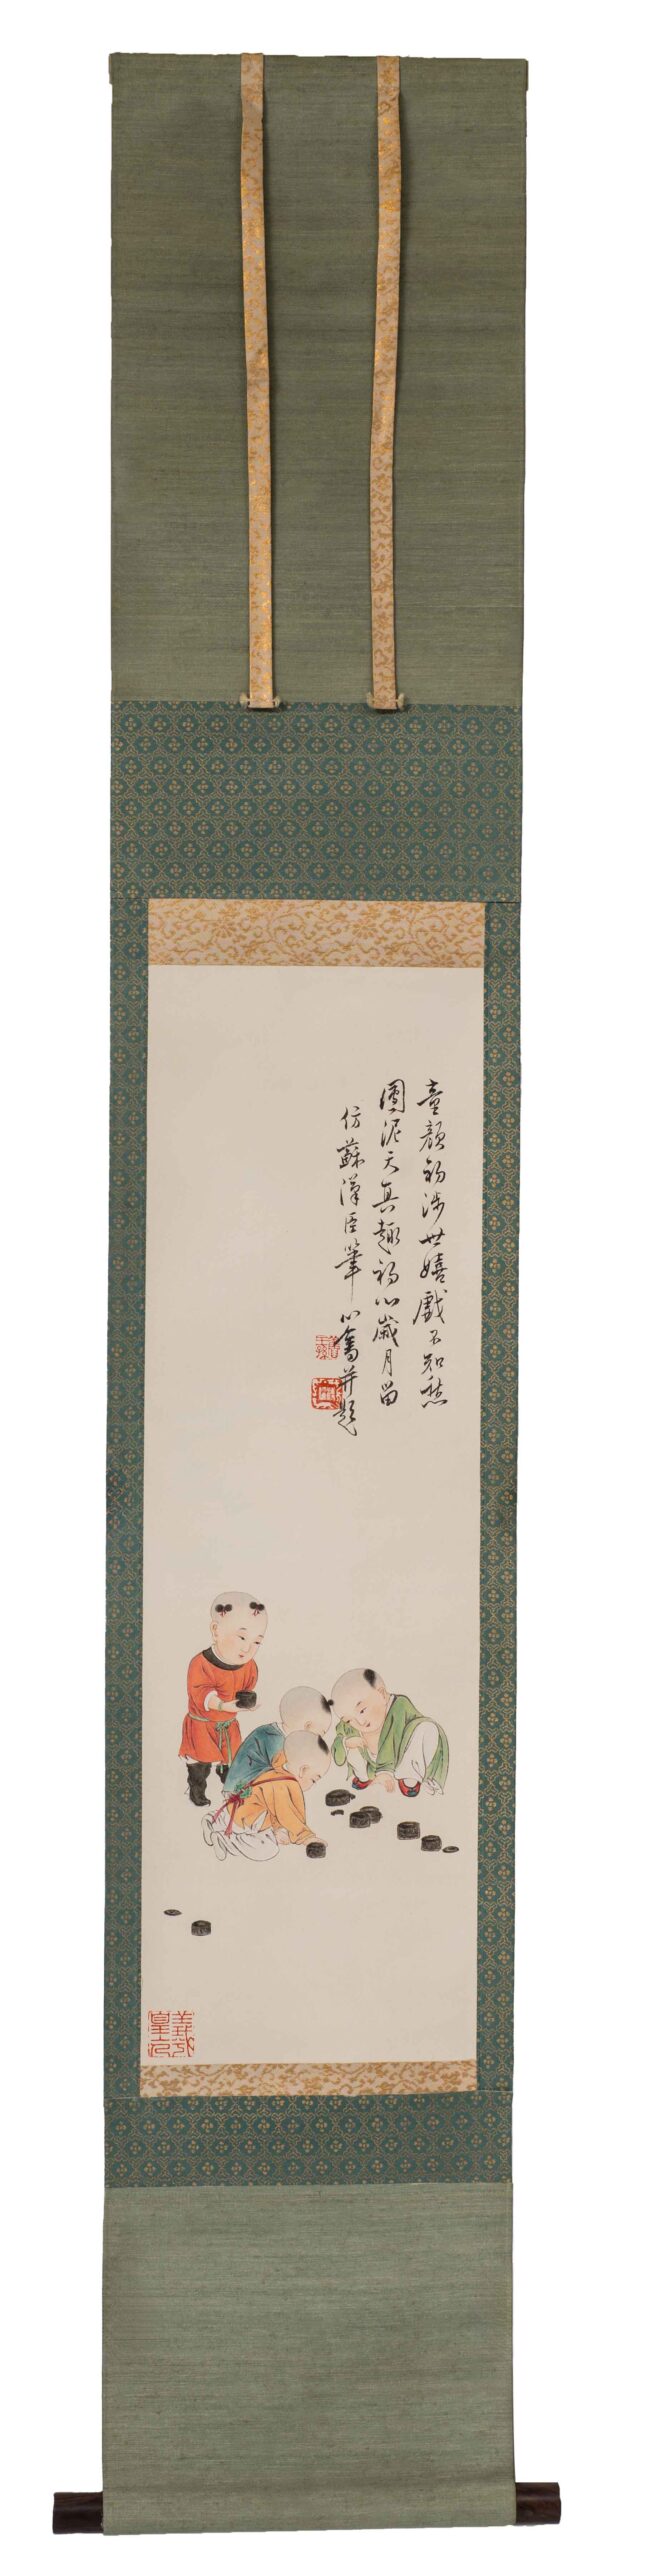 童顏初涉世嬉戲不知愁
團泥天真趣初心歲月留
仿蘇漢臣筆心畬并題